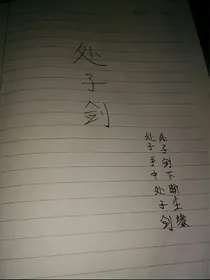 处子剑
处子手中处子剑
处子剑下断尘缘